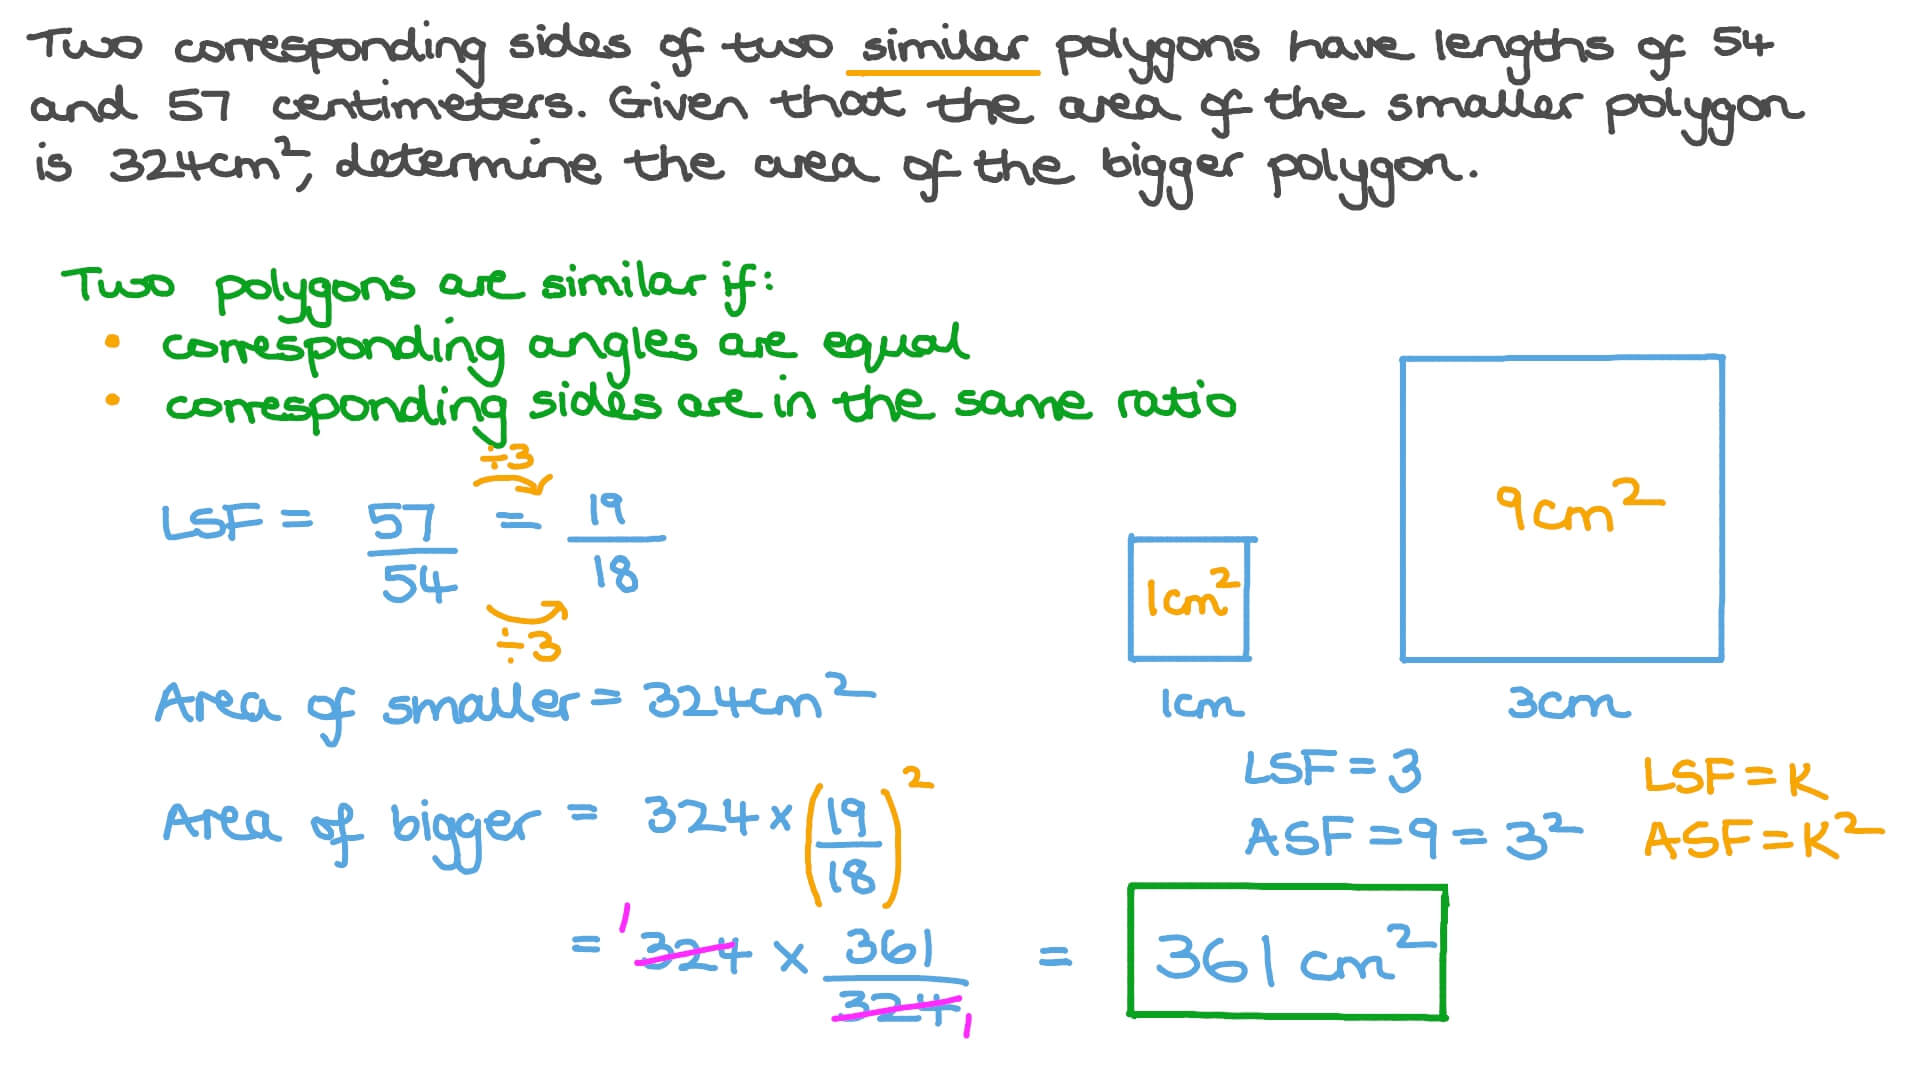 Two corresponding sides of two similar polygons have lengths of 54
and 57 centimeters. Given that the area of the smaller polygon
is 324cm², determine the area of the bigger polygon.
Two polygons are similar if:
• corresponding angles are equal
• corresponding sides are in the same ratio
÷3
LSF = 57/54 = 19/18
÷3
9cm²
1cm²
1cm
3cm
Area of smaller = 324cm²
LSF = 3
LSF = K
ASF = 9 = 3²
ASF = K²
Area of bigger = 324 × (19/18)²
= 1 324 × 361/324 1 = 361 cm²